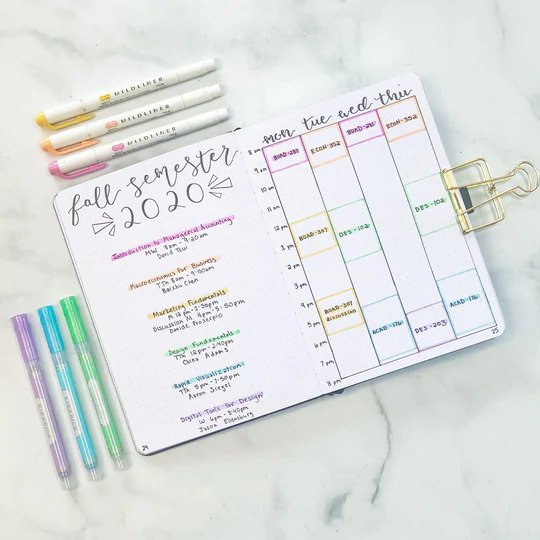 MILDLINER
MILDLINER
MILDLINER
fall semester
2020
Introduction to Managerial Accounting
MW 8am - 9:20am
David Tsui
Macroeconomics for Business
TTh 8am -
Baizhu Chen
Marketing Fundamentals
M 12pm -
Discussion M 4pm - 5:50pm
Davide Proserpio
Design Fundamentals
TTh 12pm - 2:40pm
China Adams
Rapid Visualization
TTh 5pm - 7:50pm
Aaron Siegel
Digital Tools for Design
W 6pm - 8:40pm
Jason Ellenburg
24
mon tue wed thu
8 am
9 am
10 am
11 am
12 pm
1 pm
2 pm
3 pm
4 pm
5 pm
6 pm
7 pm
8 pm
BUAD-281 ECON-352 BUAD-281 ECON-352
BUAD-307 DES-102 DES-102
BUAD-307
discussion
ACAD-176 DES-203 ACAD-176
25